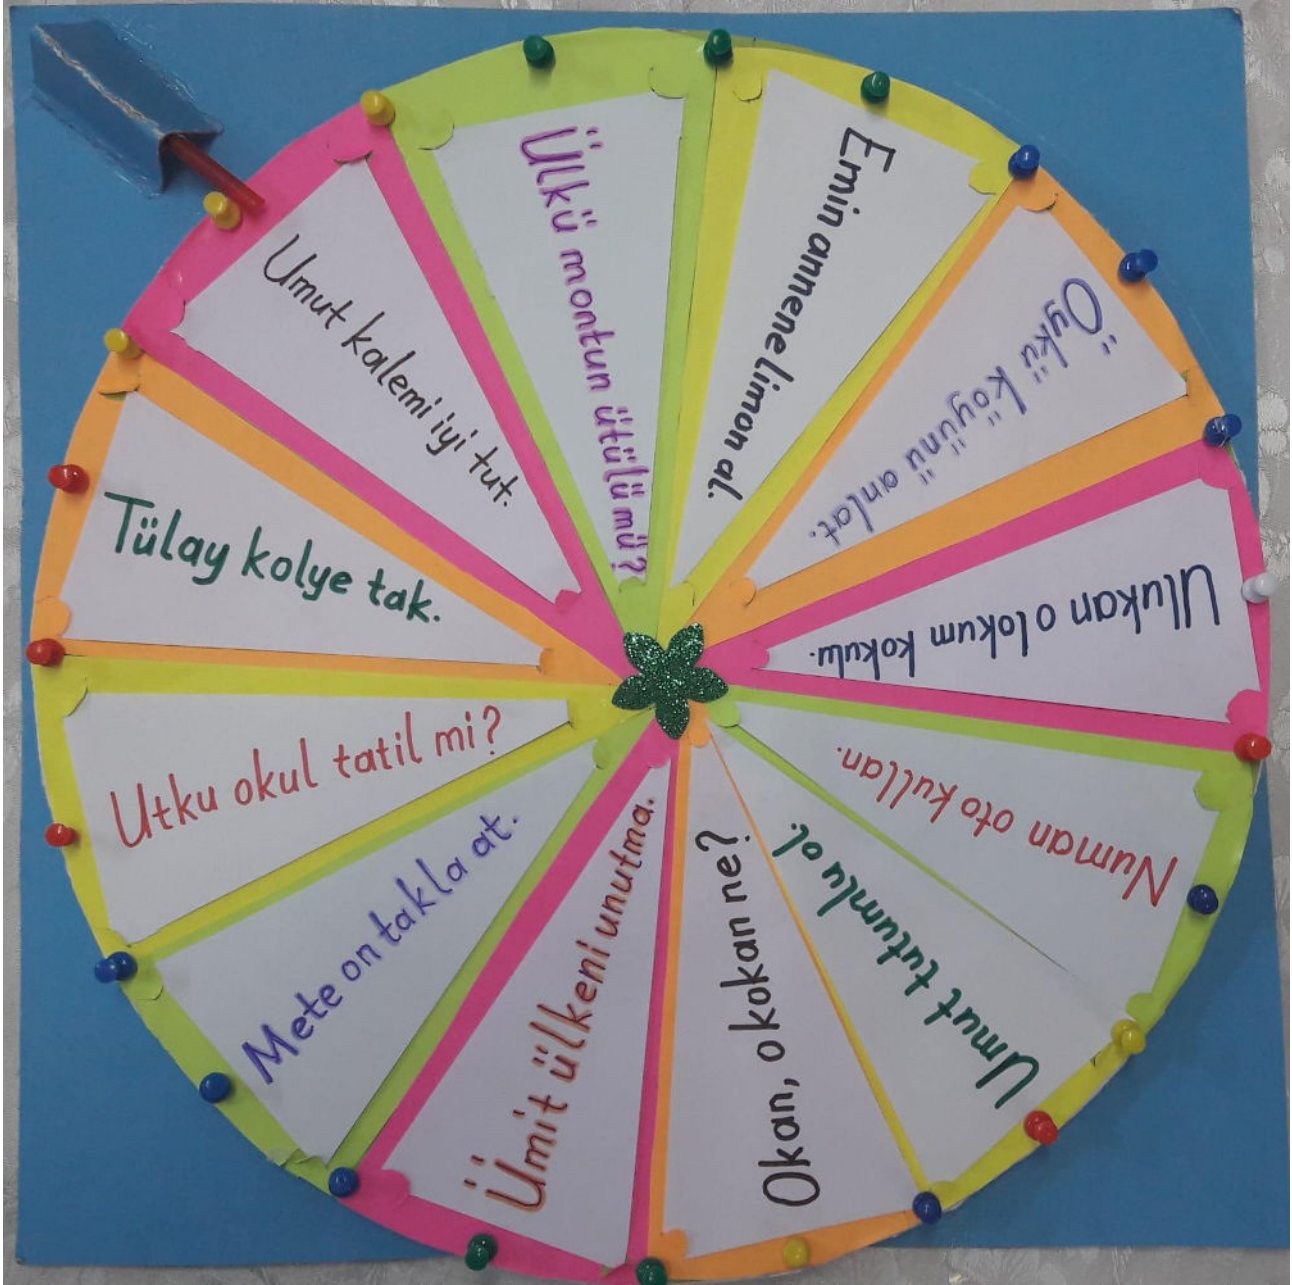 Ülkü montun ütülü mü?
Emin annene limon al.
Öykü köyünü anlat.
Ulukan o lokum kokulu.
Numan oto kullan.
Umut tutumlu ol.
Okan, o kokan ne?
Ümit ülkeni unutma.
Mete on takla at.
Utku okul tatil mi?
Tülay kolye tak.
Umut kalemi iyi tut.